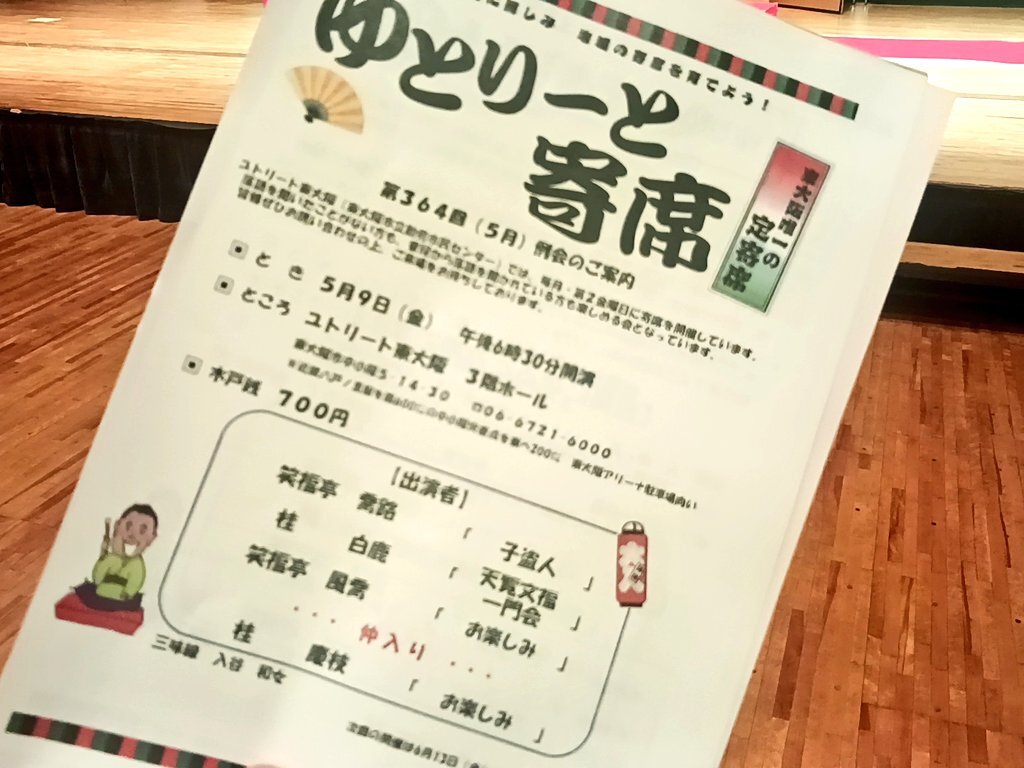 に親しみ 落語の習慣を育てよう！
ゆとりーと
寄席
東大阪唯一の
定席寄席
第364回（5月）例会のご案内
ユトリート東大阪（東大阪市立勤労市民センター）では、毎月・第2金曜日に寄席を開催しています。
落語を聞いたことがない方も、普段から落語を聞かれている方も楽しめる会となっています。
皆様ぜひお誘い合わせの上、ご来場をお待ちしております。
と き 5月9日（金） 午後6時30分開演
ところ ユトリート東大阪 3階ホール
東大阪市中小阪5-14-30 ☎06-6721-6000
木戸銭 700円
【出演者】
笑福亭 喬路 「 子盗人 」
桂 白鹿 「 天覧文福一門会 」
笑福亭 風喬 「 お楽しみ 」
・・・ 仲入り ・・・
桂 慶枝 「 お楽しみ 」
三味線 入谷 和女
次回の開催は6月13日（金